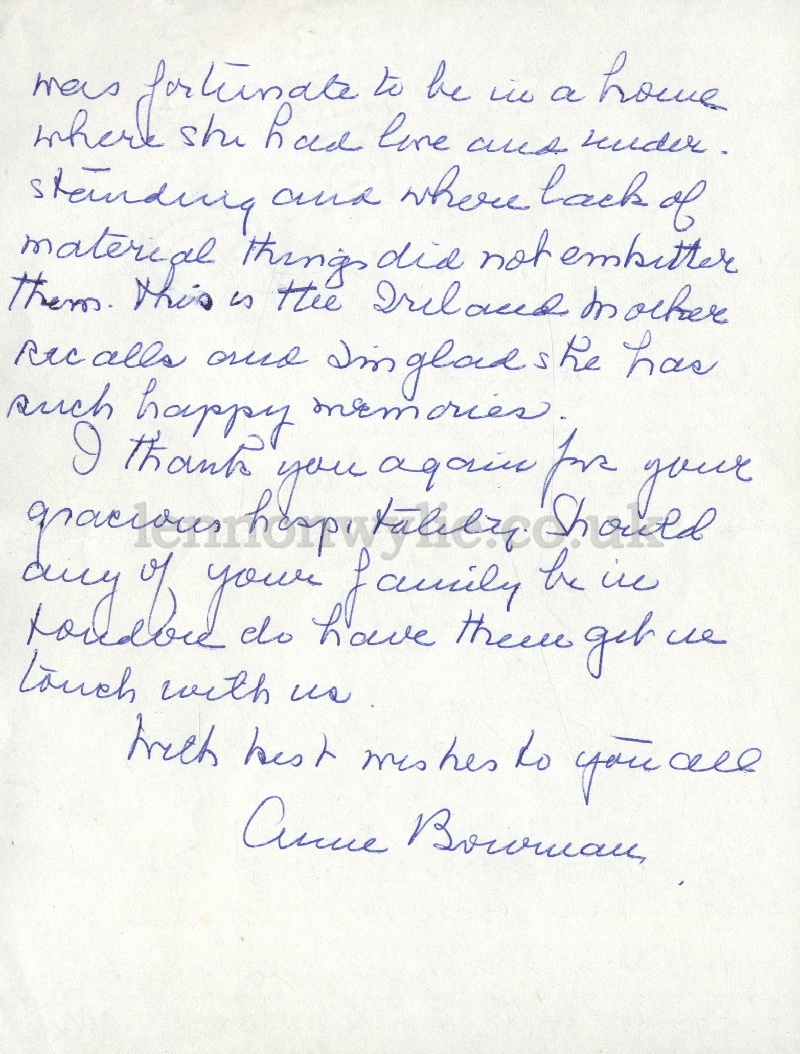 was fortunate to be in a home
where she had love and under-
standing and where lack of
material things did not embitter
them. This is the Ireland Mother
recalls and I'm glad she has
such happy memories.
I thank you again for your
gracious hospitality. Should
lennonwylie.co.uk
any of your family be in
London do have them get in
touch with us.
With best wishes to you all
Anne Bowman.